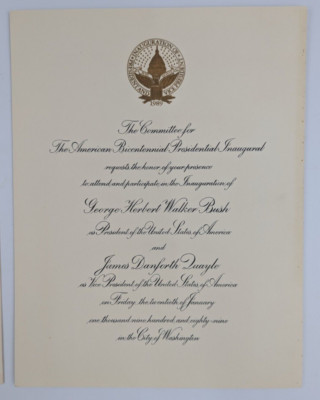 1989
The Committee for
The American Bicentennial Presidential Inaugural
requests the honor of your presence
to attend and participate in the Inauguration of
George Herbert Walker Bush
as President of the United States of America
and
James Danforth Quayle
as Vice President of the United States of America
on Friday, the twentieth of January
one thousand nine hundred and eighty-nine
in the City of Washington